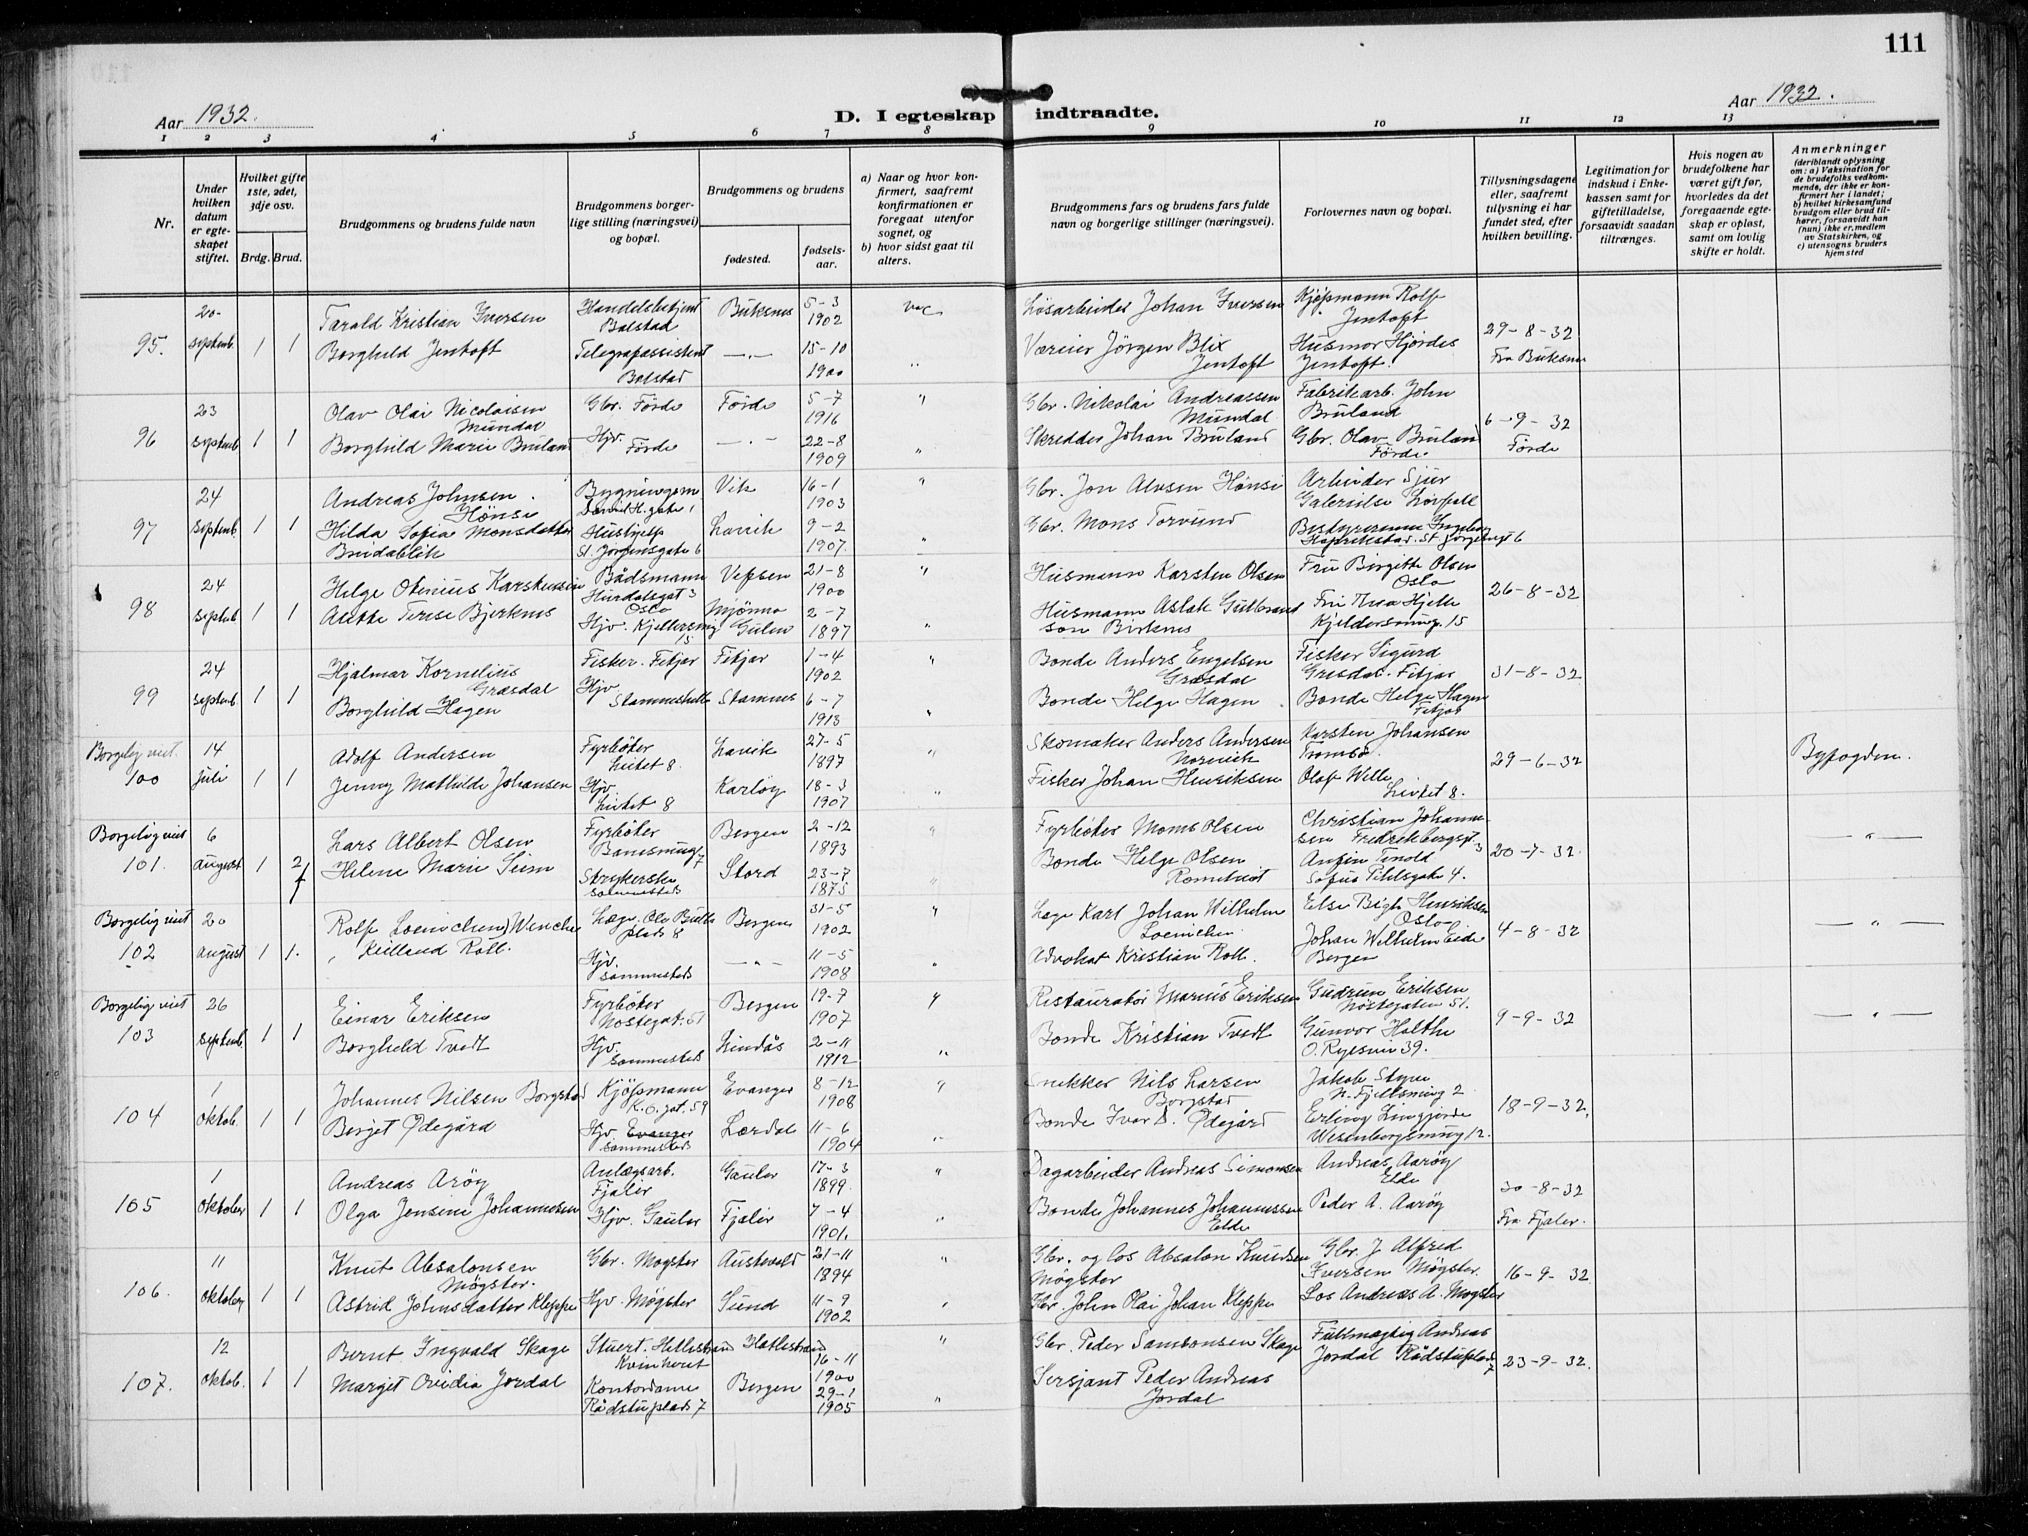 111
Aar 1932.
D. I egteskap indtraadte.
Aar 1932.
1 2 3 4 5 6 7 8 9 10 11 12 13
Nr.
Under hvilken datum er egteskapet stiftet.
Hvilket gifte 1ste, 2det, 3dje osv.
Brdg. Brud.
Brudgommens og brudens fulde navn
Brudgommens borgerlige stilling (næringsvei) og bopæl.
Brudgommens og brudens
fødested.
fødselsaar.
a) Naar og hvor konfirmert, saafremt konfirmationen er foregaat utenfor sognet, og
b) hvor sidst gaat til alters.
Brudgommens fars og brudens fars fulde navn og borgerlige stillinger (næringsvei).
Forlovernes navn og bopæl.
Tillysningsdagene eller, saafremt tillysning ei har fundet sted, efter hvilken bevilling.
Legitimation for indskud i Enkekassen samt for giftetilladelse, forsaavidt saadan tiltrænges.
Hvis nogen av brudefolkene har været gift før, hvorledes da det foregaaende egteskap er opløst, samt om lovlig skifte er holdt.
Anmerkninger
(deriblandt oplysning om: a) Vaksination for de brudefolks vedkommende, der ikke er konfirmert her i landet; b) hvilket kirkesamfund brudgom eller brud tilhører, forsaavidt han (hun) ikke er medlem av Statskirken, og c) utensogns bruders hjemsted
95. 20 septemb. 1 1
Tarald Kristian Iversen
Handelsbetjent Balstad
Buksnes 5-3 1902
Løsarbeider Johan Iversen
Kjøpmann Rolf Jentoft
Borghild Jentoft
Telegrafassistent Balstad
—"— 15-10 1900 "
Væreier Jörgen Blix Jentoft
Husmor Hjördis Jentoft.
29-8-32 Fra Buksnes
96 23 septemb 1 1
Olav Olai Nicolaisen Mundal
Gbr. Förde Förde 5-7 1916 "
Gbr. Nikolai Andreassen Mundal
Fabrikarb. John Bruland
Borghild Marie Bruland
Hjv. Förde —"— 22-8 1909 "
Skredder Johan Bruland
Gbr. Olav Bruland Förde
6-9-32 Förde
97 24 septemb 1 1
Andreas Johnsen. Hönsi
Vik 16-1 1903 "
Gbr. Jon Hönsi
Arbeider Sjur
Hilda Sofia Monsdatter Breidablik
Hushjelp St. Jørgensgate 6
Lavik 9-2 1907. "
Gbr. Mons Torvund
Bestyrerinne Ingeborg
98 24 septemb 1 1
Helge Otenius Karstensen
Bådsmann Hurdalsgt 3 Oslo
Vefsen 21-8 1900 "
Husmann Karsten Olsen
Fru Birgitte Olsen Oslo
Terese Bjerknes
Hjv. 15
Mjömo Gulen 2-7 1897 "
Husmann Aslak Gulbrandson Birknes
Fru Thea Hjelle 15
26-8-32
99 24 septemb 1 1
Hjalmar Kornelius Græsdal
Fisker. Fitjar Fitjar 1-4 1902 "
Bonde Anders Engelsen Græsdal
Fisker Sigurd Gresdal. Fitjar
Borghild Hagen
Hjv Stamnes 6-7 1913 "
Bonde Helge Hagen
Bonde Helge Hagen Fitjar
31-8-32
Borgelig viet. 100 14 juli 1 1
Adolf Andersen
Fyrböter 8. Lavik 27-5 1897 "
Skomaker Anders Andersen
Karsten Johansen Tromsö.
Jenny Mathilde Johansen
Hjv. 8 Karlöy 18-3 1907 "
Fisker Johan Henriksen
Olaf Wille 8.
29-6-32
Byfogden.
Borgelig viet 101. 6 august 1 2
Lars Albert Olsen
Fyrböter 7
Bergen 2-12 1893 "
Fyrböter Mons Olsen
Christian Johannesen Fredriksbergsgt 3
Helene Marie Seim
Strykerske sammesteds
Stord 23-7 1875 "
Bonde Helge Olsen
Sofus 4.
20-7-32.
—"—
Borgelig viet 102 20 august 1 1.
Rolf Loennichen) Wenche Kielland Roll.
Læge. Ole Bulls plads 8
Bergen 31-5 1902 "
Læge Karl Johan Wilhelm Loennichen
Else Henriksen Oslo
Hjv. sammesteds
—"— 11-5 1908 "
Advokat Kristian Roll.
Johan Wilhelm Eide Bergen
4-8-32
—"—
Borgelig viet 103 26 septemb. 1 1
Einar Eriksen
Fyrböter Nöstegat. 51
Bergen 19-7 1907 "
Restauratör Marius Eriksen
Gudrun Eriksen Nöstegaten 51.
Borghild Tvedt
Hjv. sammesteds
Lindås 2-11 1912 "
Bonde Kristian Tvedt
Gunvor Holthe O. Ryesvei 39.
9-9-32
—"—
104 1 oktob. 1 1
Johannes Nilsen Borgstad
Kjöpmann K.O. gt. 59
Evanger 8-12 1908 "
Snekker Nils Larsen Borgstad
Jakob Styve N. Fjellsmug 2
Berget Ødegård
Hjv. Evanger sammesteds
Lærdal 11-6 1904 "
Bonde Ivar D. Ødegård
Erling 12.
18-9-32.
105 1 oktober 1 1
Andreas Aröy
Anlægsarb. Fjaler
Gauler 17-3 1899. "
Dagarbeider Andreas Simonsen
Andreas Aaröy Elde
Olga Jensine Johannesen
Hjv. Gauler Fjaler 7-4 1901. "
Bonde Johannes Johannessen Elde
Peder A. Aaröy
30-8-32 Fra Fjaler.
106. 11 oktober 1 1
Knut Absalonsen Møgster.
Gbr. Møgster Austevold 21-11 1894 "
Gbr. og los Absalon Knudsen Møgster
Gbr. J Alfred Iversen Møgster.
Astrid Johnsdatter Kleppe
Hjv. Møgster Sund 11-9 1902 "
Gbr. John Olai Johan Kleppe
Los Andreas A. Møgster
16-9-32
107. 12 oktob. 1 1
Bernt Ingvald Skage
Stuert. Hatlestrand Kvinherret
Hatlestrand 16-11 1900 "
Gbr. Peder Samsonsen Skage
Fullmægtig Andreas Jordal Rådstuplads 7
Marget Ovidia Jordal
Kontordame Rådstuplads 7
Bergen 29-1 1905 "
Sersjant Peder Andreas Jordal
23-9-32.